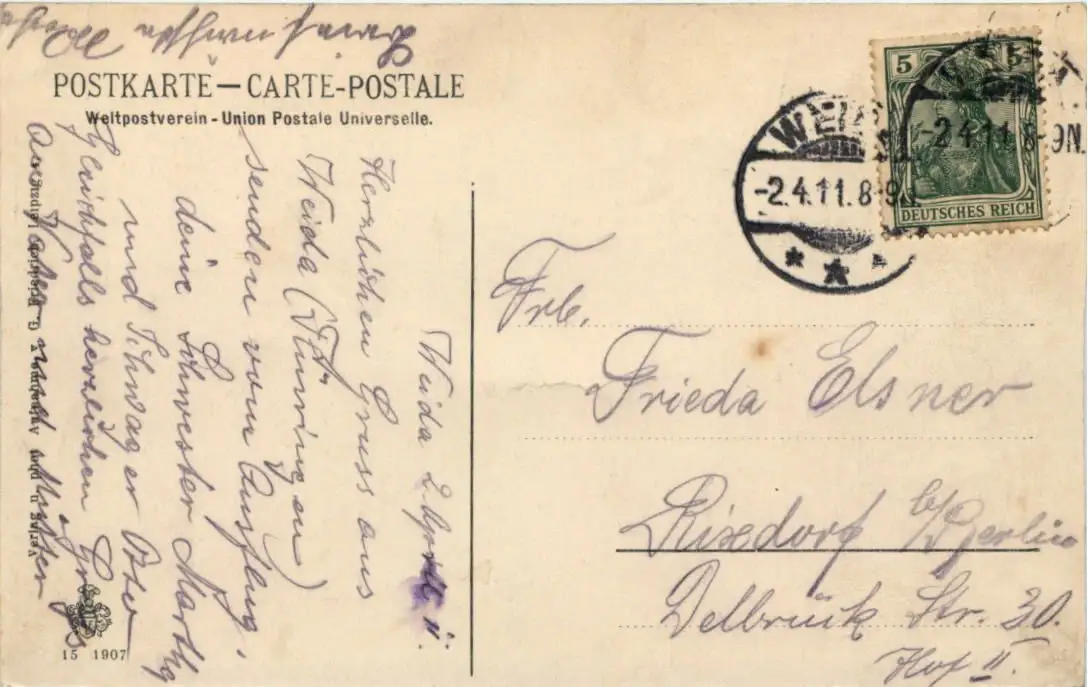 POSTKARTE — CARTE-POSTALE
Weltpostverein - Union Postale Universelle.
Weida 2. April 11.
Herzlichen Gruss aus
Weida (Thüringen)
senden vom Ausflug,
deine Schwester Martha
und Schwager Otto
Gleichfalls herzlichen Gruss
Vater Mutter
15 1907
WEID
-2.4.11.8-9N.
-2.4.11.8-9N.
5 5
DEUTSCHES REICH
Frl.
Frieda Elsner
Rixdorf b/Berlin
Delbrück Str. 30.
Hof II.